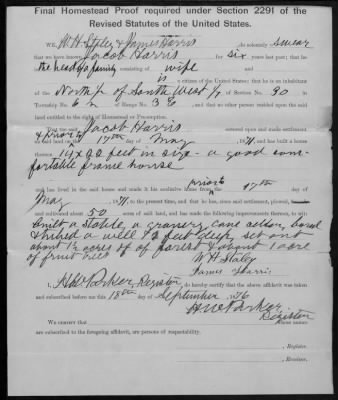 Final Homestead Proof required under Section 2291 of the
Revised Statutes of the United States.
WE, W. H. Staley & James Harris do solemnly swear
that we have known Jacob Harris for six years last past; that he
the head of a family consisting of wife
is a citizen of the United States; that he is an inhabitant
of the North ½ of South West ¼ of Section No. 30 in
Township No. 6 N of Range No. 3 E, and that no other person resided upon the said
land entitled to the right of Homestead or Preemption.
That the said Jacob Harris entered upon and made settlement
& prior to on said land on the 17th day of May, 1871, and has built a house
thereon 14 x 22 feet in size - a good com-
fortable frame house
and has lived in the said house and made it his exclusive home from the prior to 17th day of
May, 1871, to the present time, and that he has, since said settlement, plowed,
and cultivated about 50 acres of said land, and has made the following improvements thereon, to wit:
built a stable, a granary, cow
& dug a well feet deep, set out
about 1½ acres of forest & about 1 acre
of fruit trees
W H Staley
James Harris
I, H. W. Parker, Register, do hereby certify that the above affidavit was taken
and subscribed before me this 18th day of September, 1876
H. W. Parker
Register
WE CERTIFY that whose names
are subscribed to the foregoing affidavit, are persons of respectability.
, Register.
, Receiver.